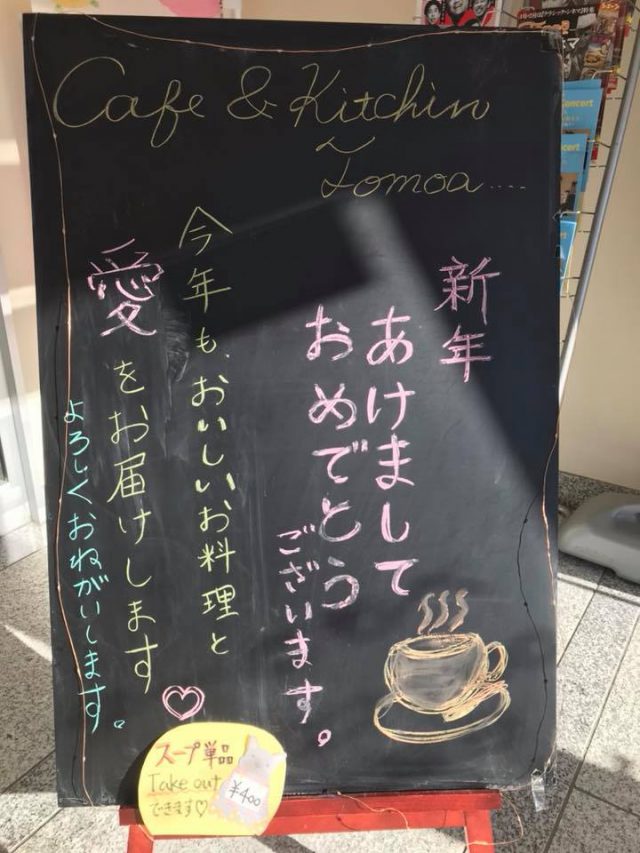 Cafe & Kitchin
Tomoa....
新年
あけまして
おめでとう
ございます。
今年も、おいしいお料理と
愛をお届けします
よろしくおねがいします。
スープ単品
Take out
できます♡
¥400
Concert